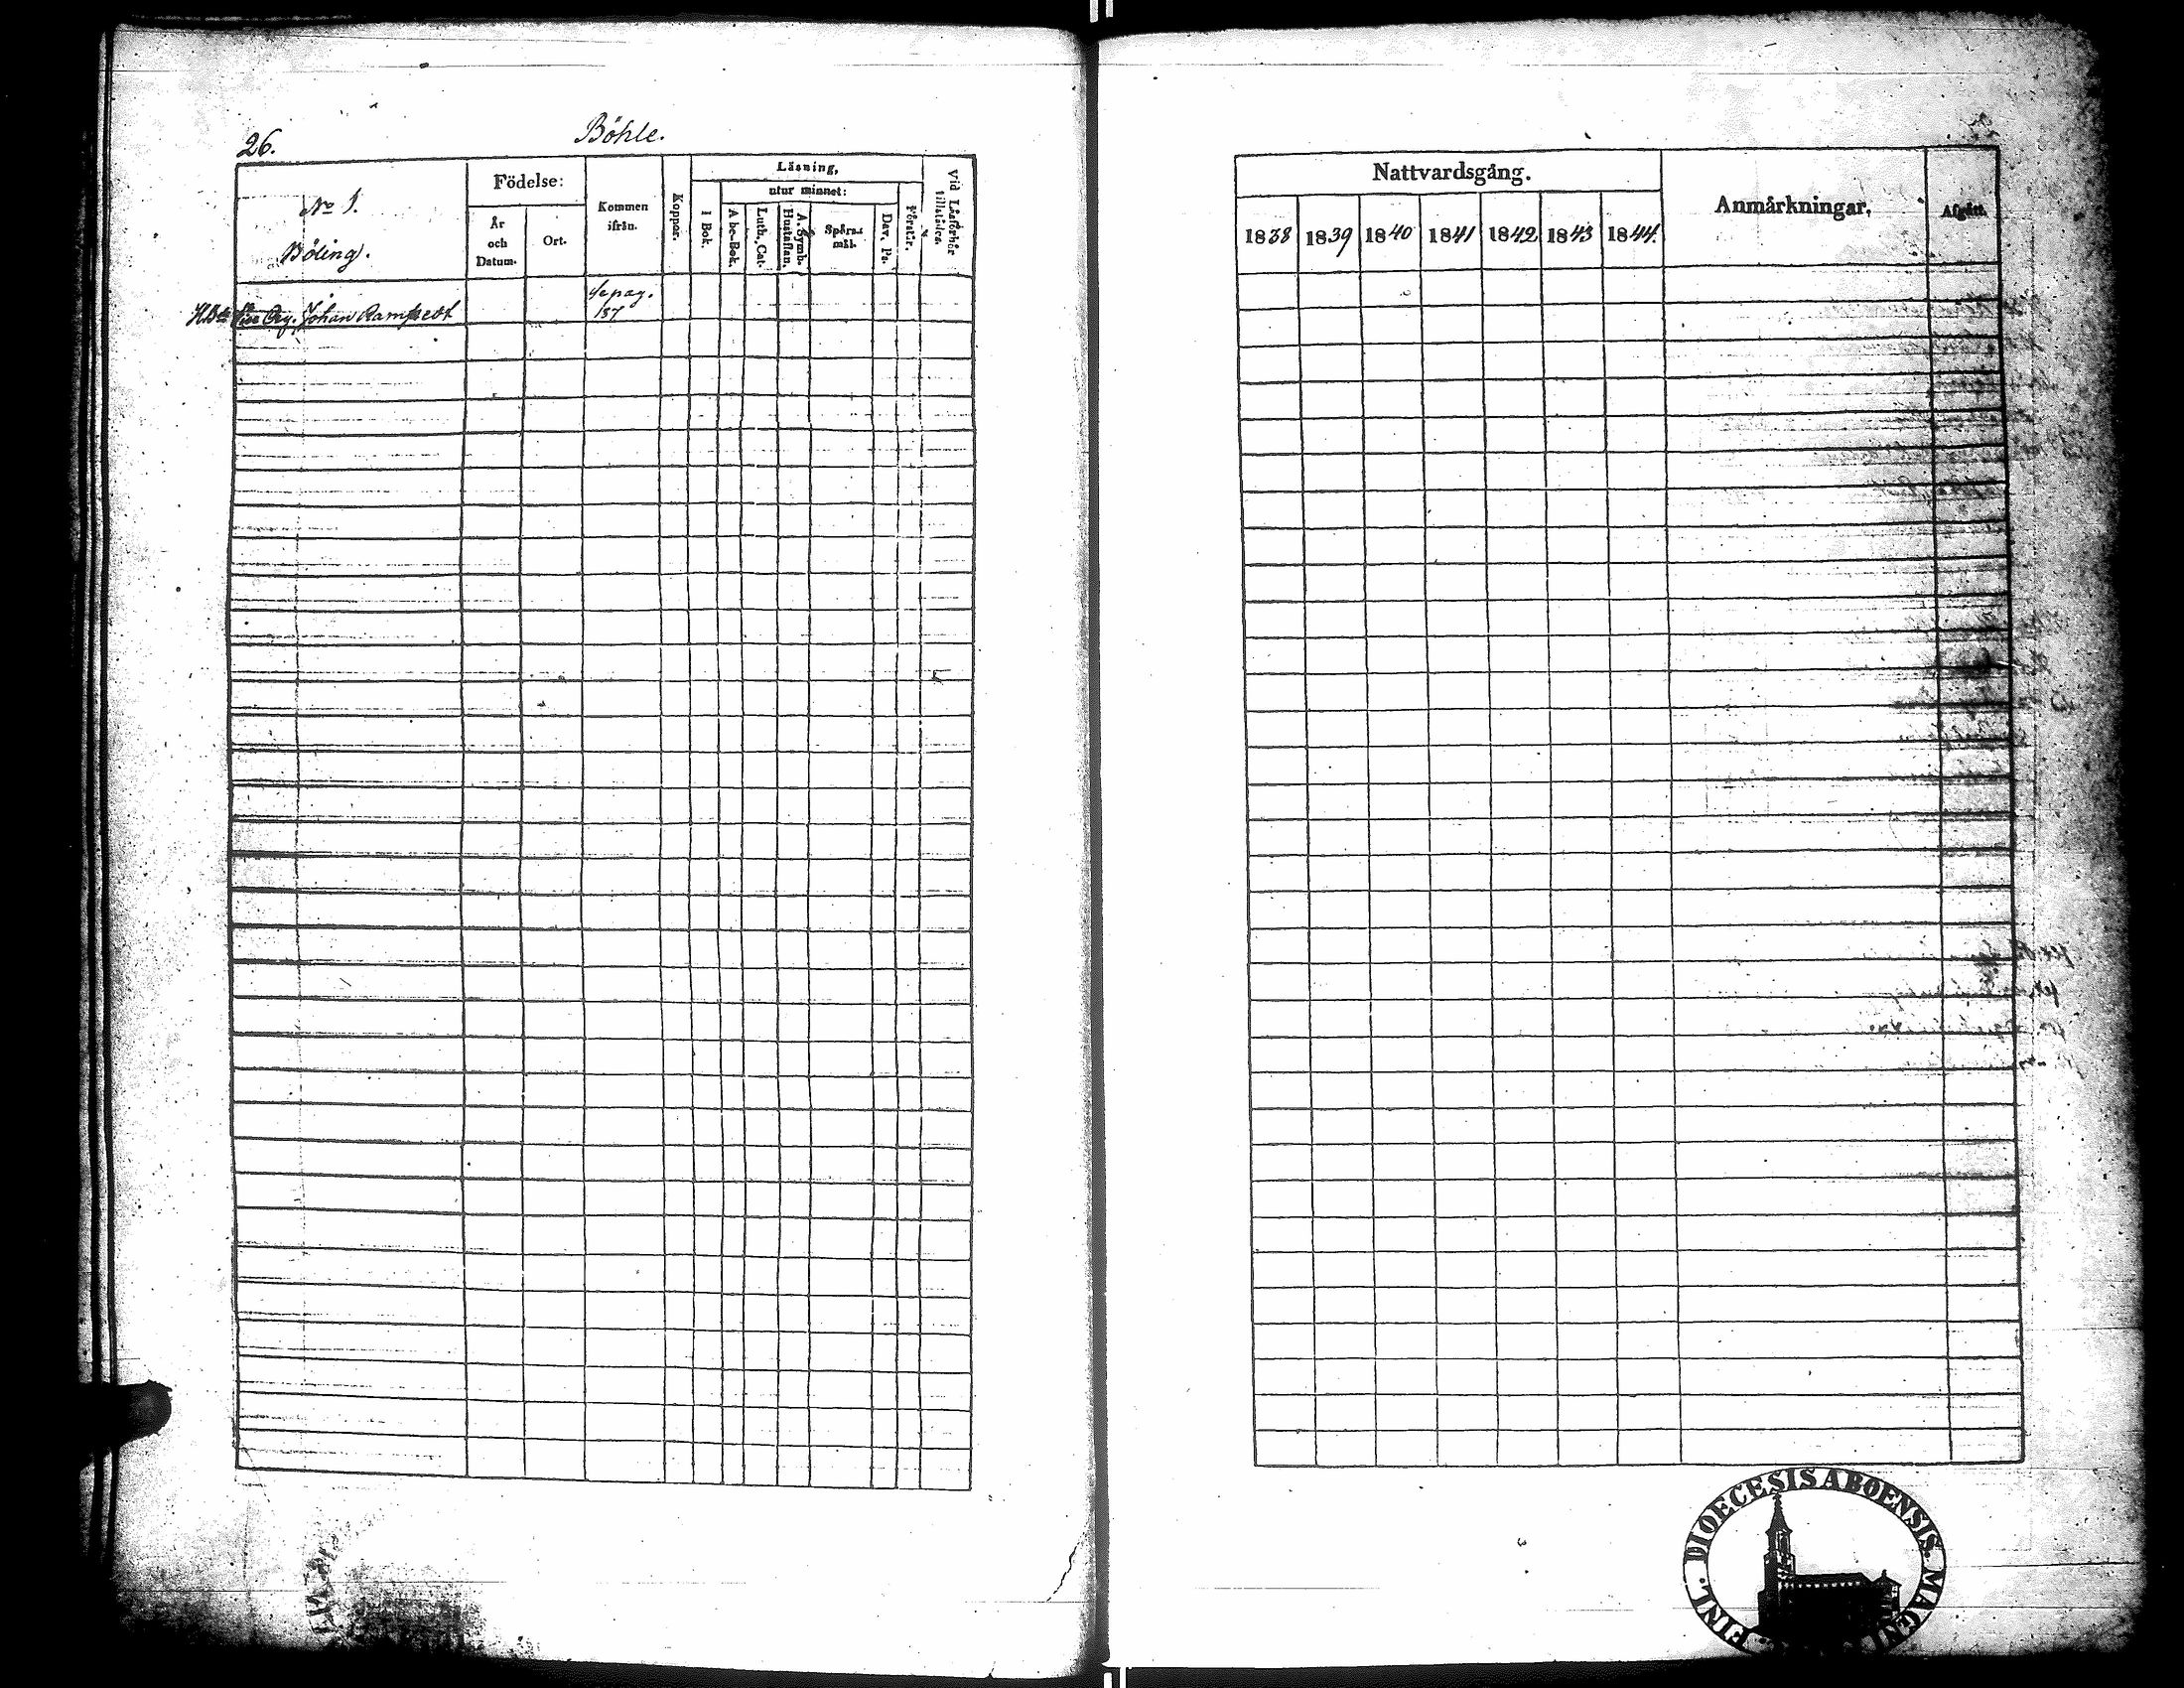 26.
Böhle.
No 1.
Böling.
Födelse:
År
och
Datum.
Ort.
Kommen
ifrån.
Koppor.
Läsning,
utur minnet:
I Bok.
A be-Bok.
Luth. Cat.
A. Symb.
Hustaflan.
Spörs-
mål.
Dav. Ps.
Förstår.
Vid Läsförhör
tillstädes.
Johan Ramstedt
se pag.
137
Nattvardsgång.
1838 1839 1840 1841 1842 1843 1844.
Anmärkningar.
Afgått.
FINL. DIOECESIS ABOENSIS. MAGNI